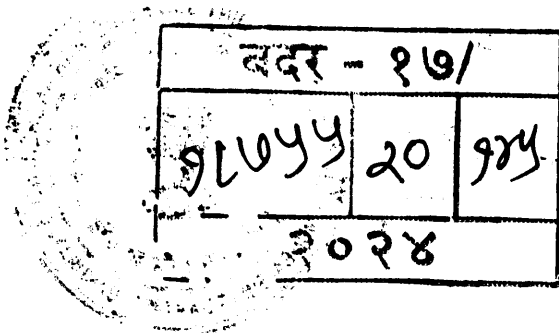 बदर - १७/
१८७५५ २० १४५
२०२४